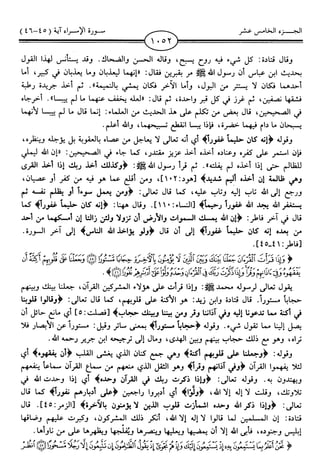 الجـــزء الخامس عشر
١٠٥٢
سورة الإسراء آية (٤٥-٤٦)
وقال قتادة: كل شيء فيه روح يسبح، وقاله الحسن والضحاك. وقد يستأنس لهذا القول
بحديث ابن عباس أن رسول الله ﷺ مر بقبرين فقال: «إنهما ليعذبان وما يعذبان في كبير، أما
أحدهما فكان لا يستتر من البول، وأما الآخر فكان يمشي بالنميمة». ثم أخذ جريدة رطبة
فشقها نصفين، ثم غرز في كل قبر واحدة، ثم قال: «لعله يخفف عنهما ما لم ييبسا». أخرجاه
في الصحيحين، قال بعض من تكلم على هذا الحديث من العلماء: إنما قال ما لم ييبسا لأنهما
يسبحان ما دام فيهما خضرة، فإذا يبسا انقطع تسبيحهما، والله أعلم.
وقوله ﴿إنه كان حليماً غفوراً﴾ أي أنه تعالى لا يعاجل من عصاه بالعقوبة بل يؤجله وينظره،
فإن استمر على كفره وعناده أخذه أخذ عزيز مقتدر، كما جاء في الصحيحين: «إن الله ليملي
للظالم حتى إذا أخذه لم يفلته». ثم قرأ رسول الله ﷺ: ﴿وكذلك أخذ ربك إذا أخذ القرى
وهي ظالمة إن أخذه أليم شديد﴾ [هود:١٠٢]، ومن أقلع عما هو فيه من كفر أو عصيان،
ورجع إلى الله تاب إليه وتاب عليه، كما قال تعالى: ﴿ومن يعمل سوءاً أو يظلم نفسه ثم
يستغفر الله يجد الله غفوراً رحيماً﴾ [النساء:١١٠]. وقال ههنا: ﴿إنه كان حليماً غفوراً﴾ كما
قال في آخر فاطر: ﴿إن الله يمسك السموات والأرض أن تزولا ولئن زالتا إن أمسكهما من أحد
من بعده إنه كان حليماً غفوراً﴾ إلى أن قال ﴿ولو يؤاخذ الله الناس﴾ إلى آخر السورة.
[فاطر:٤١-٤٥].
﴿وَإِذَا قَرَأْتَ الْقُرْآنَ جَعَلْنَا بَيْنَكَ وَبَيْنَ الَّذِينَ لَا يُؤْمِنُونَ بِالْآخِرَةِ حِجَابًا مَسْتُورًا ۝ وَجَعَلْنَا عَلَى قُلُوبِهِمْ أَكِنَّةً أَن
يَفْقَهُوهُ وَفِي آذَانِهِمْ وَقْرًا وَإِذَا ذَكَرْتَ رَبَّكَ فِي الْقُرْآنِ وَحْدَهُ وَلَّوْا عَلَى أَدْبَارِهِمْ نُفُورًا ۝﴾
يقول تعالى لرسوله محمد ﷺ: وإذا قرأت على هؤلاء المشركين القرآن، جعلنا بينك وبينهم
حجاباً مستوراً. قال قتادة وابن زيد: هو الأكنة على قلوبهم، كما قال تعالى: ﴿وقالوا قلوبنا
في أكنة مما تدعونا إليه وفي آذاننا وقر ومن بيننا وبينك حجاب﴾ [فصلت:٥] أي مانع حائل أن
يصل إلينا مما تقول شيء. وقوله ﴿حجاباً مستوراً﴾ بمعنى ساتر وقيل: مستوراً عن الأبصار فلا
تراه، وهو مع ذلك حجاب بينهم وبين الهدى، ومال إلى ترجيحه ابن جرير رحمه الله.
وقوله: ﴿وجعلنا على قلوبهم أكنة﴾ وهي جمع كنان الذي يغشى القلب ﴿أن يفقهوه﴾ أي
لئلا يفهموا القرآن ﴿وفي آذانهم وقراً﴾ وهو الثقل الذي منعهم من سماع القرآن سماعاً ينفعهم
ويهتدون به. وقوله تعالى: ﴿وإذا ذكرت ربك في القرآن وحده﴾ أي إذا وحدت الله في
تلاوتك، وقلت لا إله إلا الله، ﴿ولوا﴾ أي أدبروا راجعين ﴿على أدبارهم نفوراً﴾ كما قال
تعالى: ﴿وإذا ذكر الله وحده اشمأزت قلوب الذين لا يؤمنون بالآخرة﴾ [الزمر:٤٥]. قال
قتادة: إن المسلمين لما قالوا لا إله إلا الله، أنكر ذلك المشركون، وكبرت عليهم وضاقها
إبليس وجنوده، فأبى الله إلا أن يمضيها ويعليها وينصرها ويُفلِجها ويظهرها على من ناوأها.
﴿نَّحْنُ أَعْلَمُ بِمَا يَسْتَمِعُونَ بِهِ إِذْ يَسْتَمِعُونَ إِلَيْكَ وَإِذْ هُمْ نَجْوَى إِذْ يَقُولُ الظَّالِمُونَ إِن تَتَّبِعُونَ إِلَّا رَجُلًا مَّسْحُورًا ۝ انظُرْ